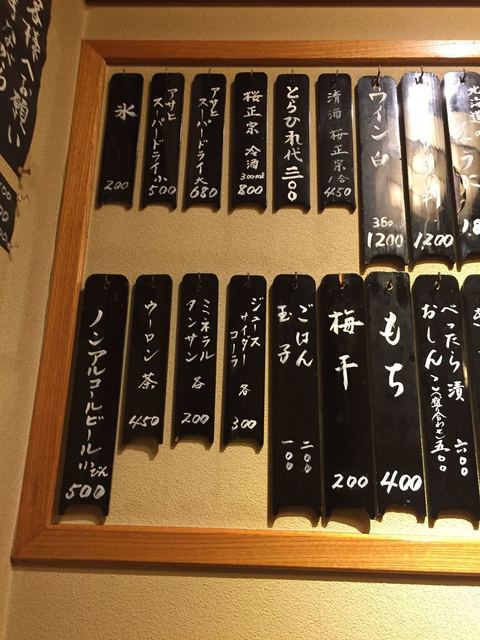 お客様へお願い
氷
200
アサヒ
スーパードライ小
500
アサヒ
スーパードライ大
680
桜正宗 冷酒
300ml
800
とらひれ代 二〇〇
清酒 桜正宗 1合
450
ワイン白
360
1200
1200
北海道の
ノンアルコールビール小びん
500
ウーロン茶
450
ミネラル
タンサン 各
200
ジュース
サイダー
コーラ 各
300
ごはん 二〇〇
玉子 一〇〇
梅干
200
もち
400
べったら漬 六〇〇
おしんこ(盛り合わせ)五〇〇